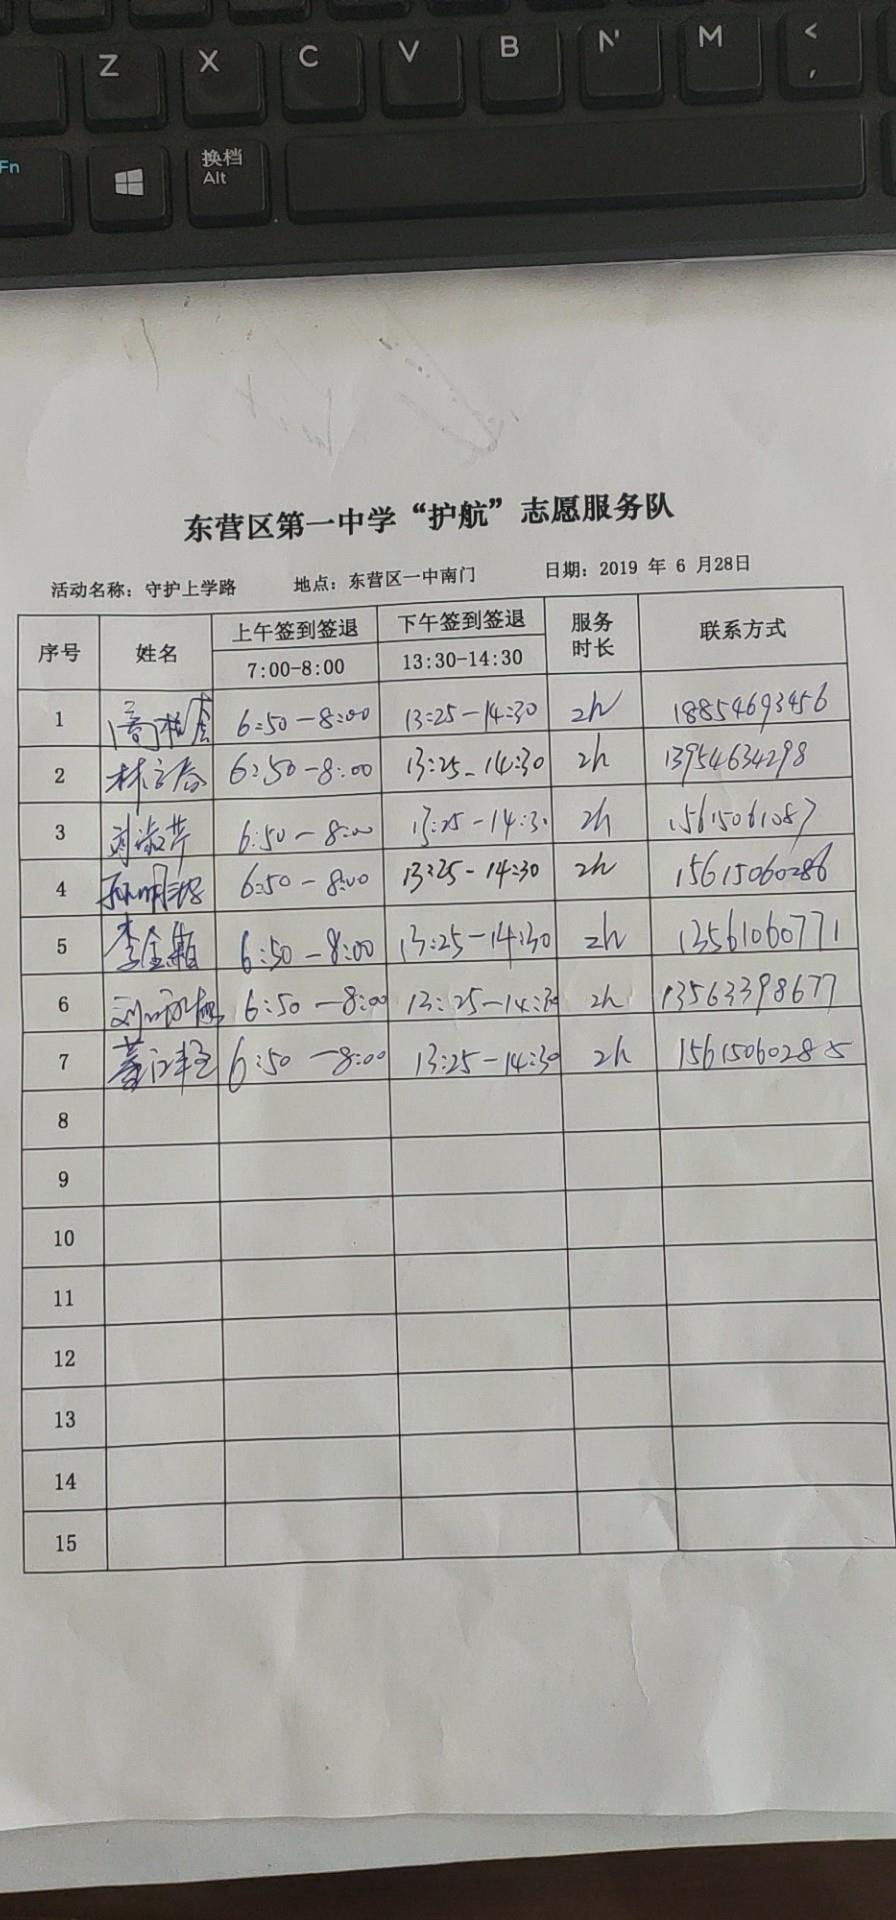 Z X C V B N M < ,
Fn 换档 Alt
东营区第一中学“护航”志愿服务队
活动名称：守护上学路 地点：东营区一中南门 日期：2019 年 6 月28日
序号 姓名 上午签到签退 7:00-8:00 下午签到签退 13:30-14:30 服务时长 联系方式
1 6:50-8:00 13:25-14:30 2h 18854693456
2 6:50-8:00 13:25-14:30 2h 13954634298
3 刘淑芹 6:50-8:00 13:25-14:30 2h 15615061087
4 6:50-8:00 13:25-14:30 2h 15615060286
5 李金颖 6:50-8:00 13:25-14:30 2h 13561060771
6 6:50-8:00 13:25-14:30 2h 13563398677
7 6:50-8:00 13:25-14:30 2h 15615060285
8
9
10
11
12
13
14
15